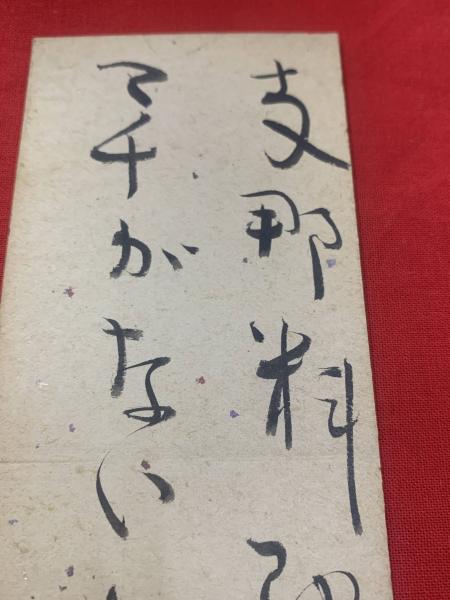 支那料理
マチがない